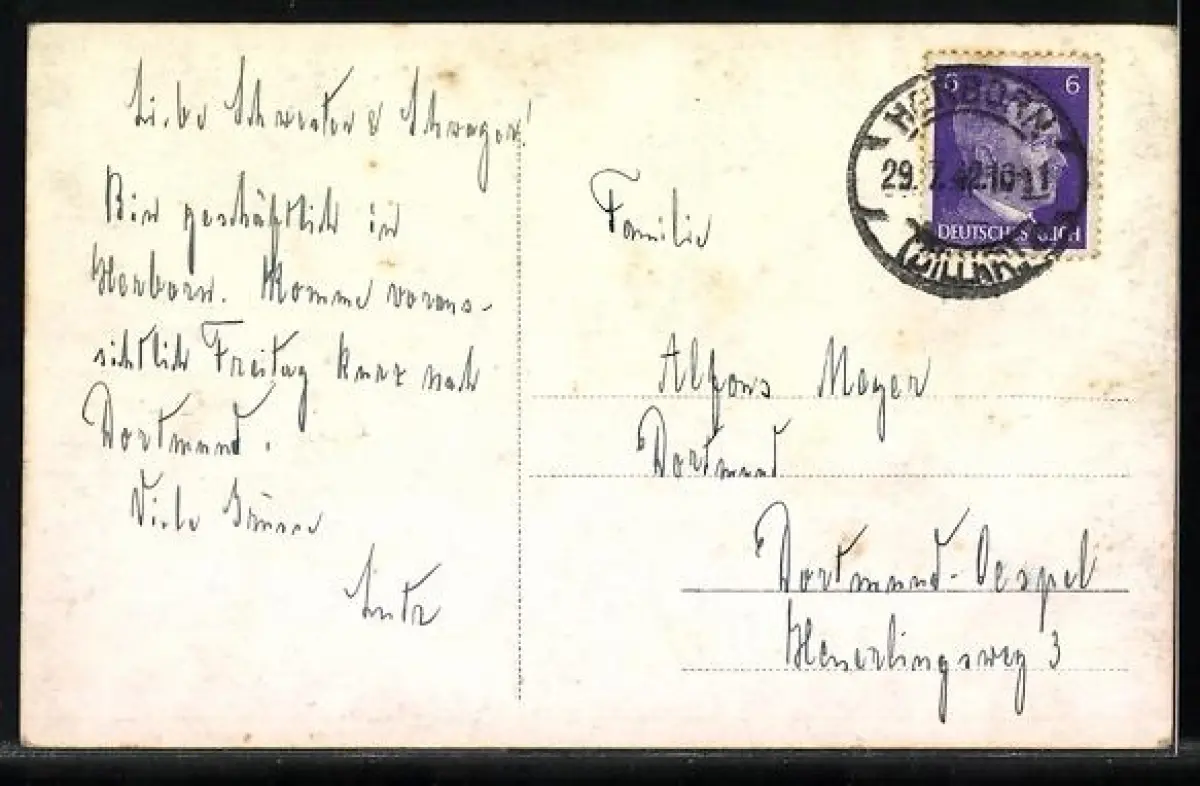 Liebe Schwester & Schwager!
Bin geschäftlich in
Herborn. Komme voraus-
sichtlich Freitag kurz nach
Dortmund.
Viele Grüsse
Lutz
Familie
Alfons Meyer
Dortmund
Dortmund-Oespel
3
6 6
DEUTSCHES REICH
HERBORN
29.7.42.10-11
(DILLKR.)